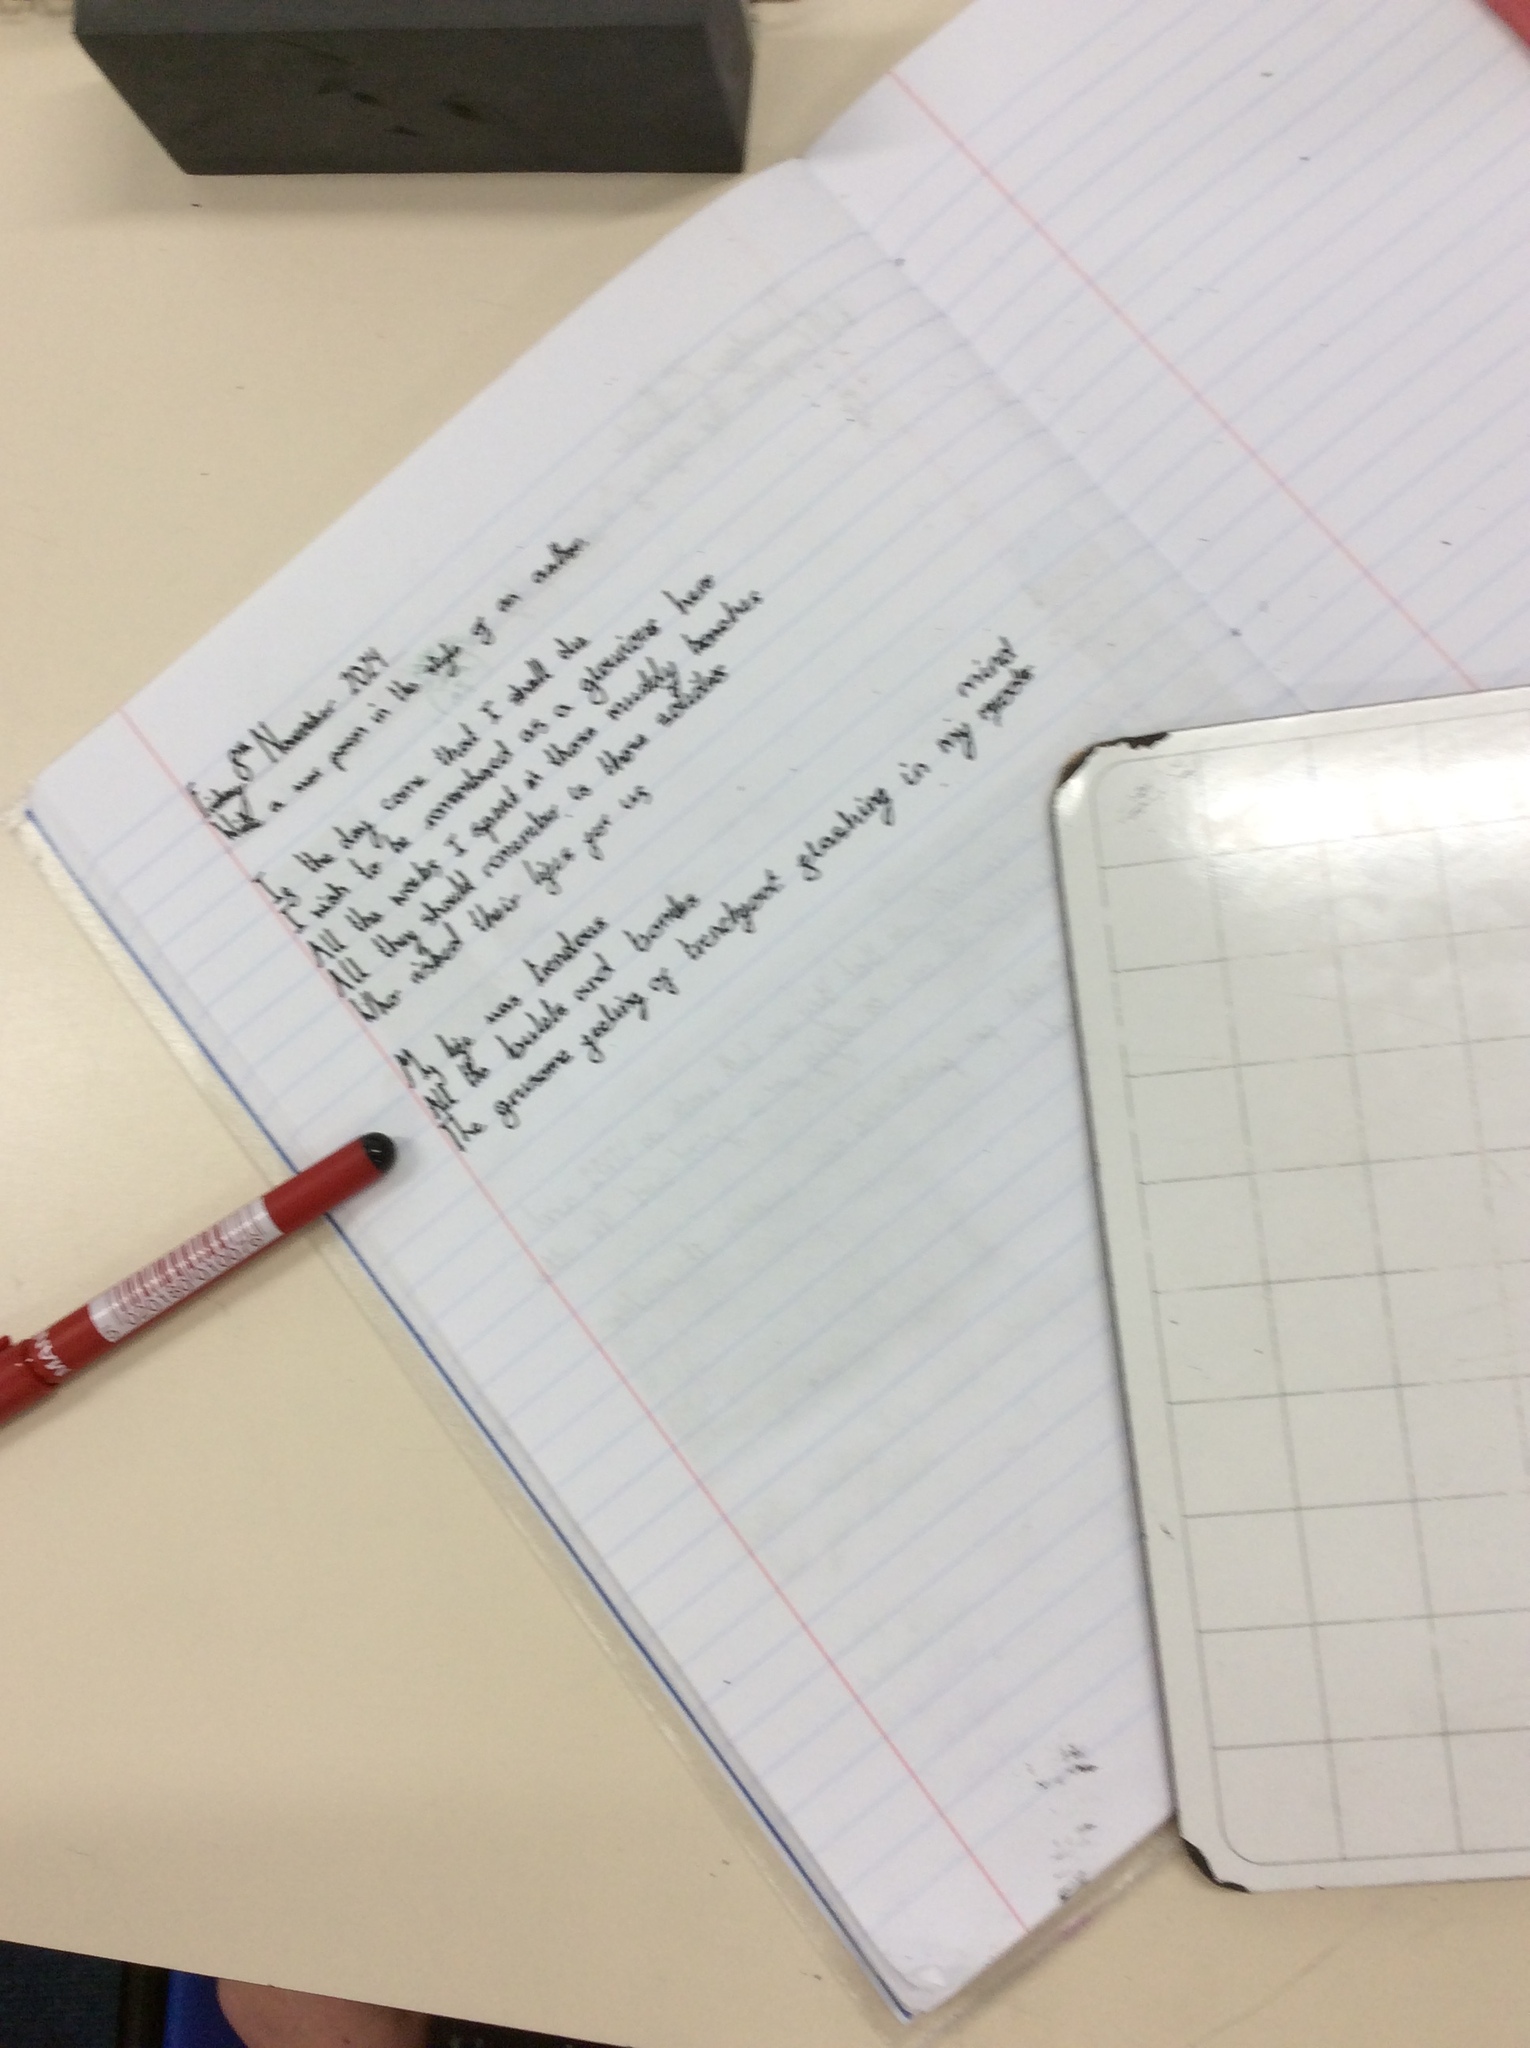 Friday 8th November 2024
WALT a war poem in the style of an author
If the day come that I shall die
I wish to be remembered as a glourious hero
All the weeks I spend in those muddy trenches
All they should remember is those soldiers
Who risked their lifes for us
My life was horrdous
All the bullets and bombs
The gruesome feeling of trenchfoot flashing in my mind
my
MAR